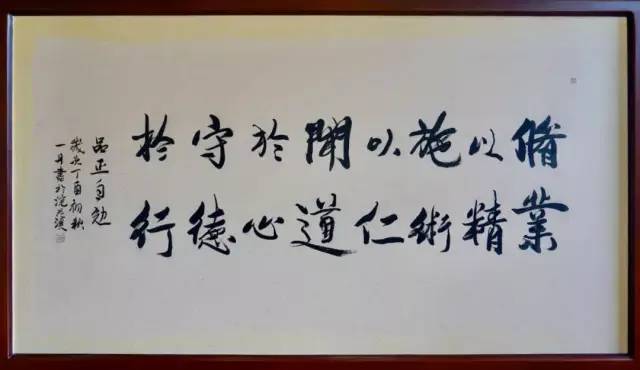 脩業
以精
施術
以仁
聞道
於心
守德
於行
品正自勉
歲次丁酉初秋
一書於浣花溪